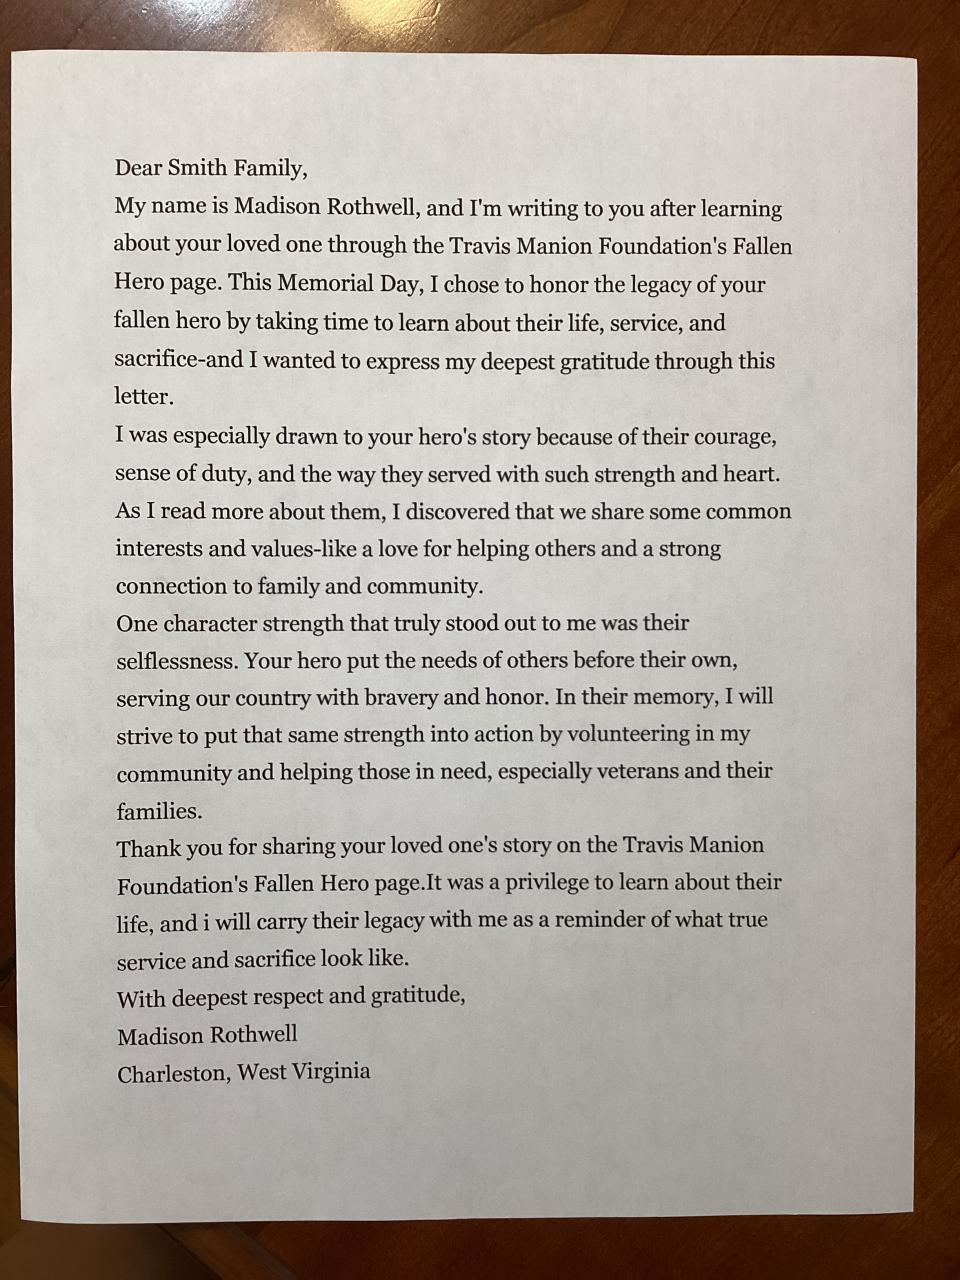 Dear Smith Family,
My name is Madison Rothwell, and I'm writing to you after learning
about your loved one through the Travis Manion Foundation's Fallen
Hero page. This Memorial Day, I chose to honor the legacy of your
fallen hero by taking time to learn about their life, service, and
sacrifice-and I wanted to express my deepest gratitude through this
letter.
I was especially drawn to your hero's story because of their courage,
sense of duty, and the way they served with such strength and heart.
As I read more about them, I discovered that we share some common
interests and values-like a love for helping others and a strong
connection to family and community.
One character strength that truly stood out to me was their
selflessness. Your hero put the needs of others before their own,
serving our country with bravery and honor. In their memory, I will
strive to put that same strength into action by volunteering in my
community and helping those in need, especially veterans and their
families.
Thank you for sharing your loved one's story on the Travis Manion
Foundation's Fallen Hero page.It was a privilege to learn about their
life, and i will carry their legacy with me as a reminder of what true
service and sacrifice look like.
With deepest respect and gratitude,
Madison Rothwell
Charleston, West Virginia